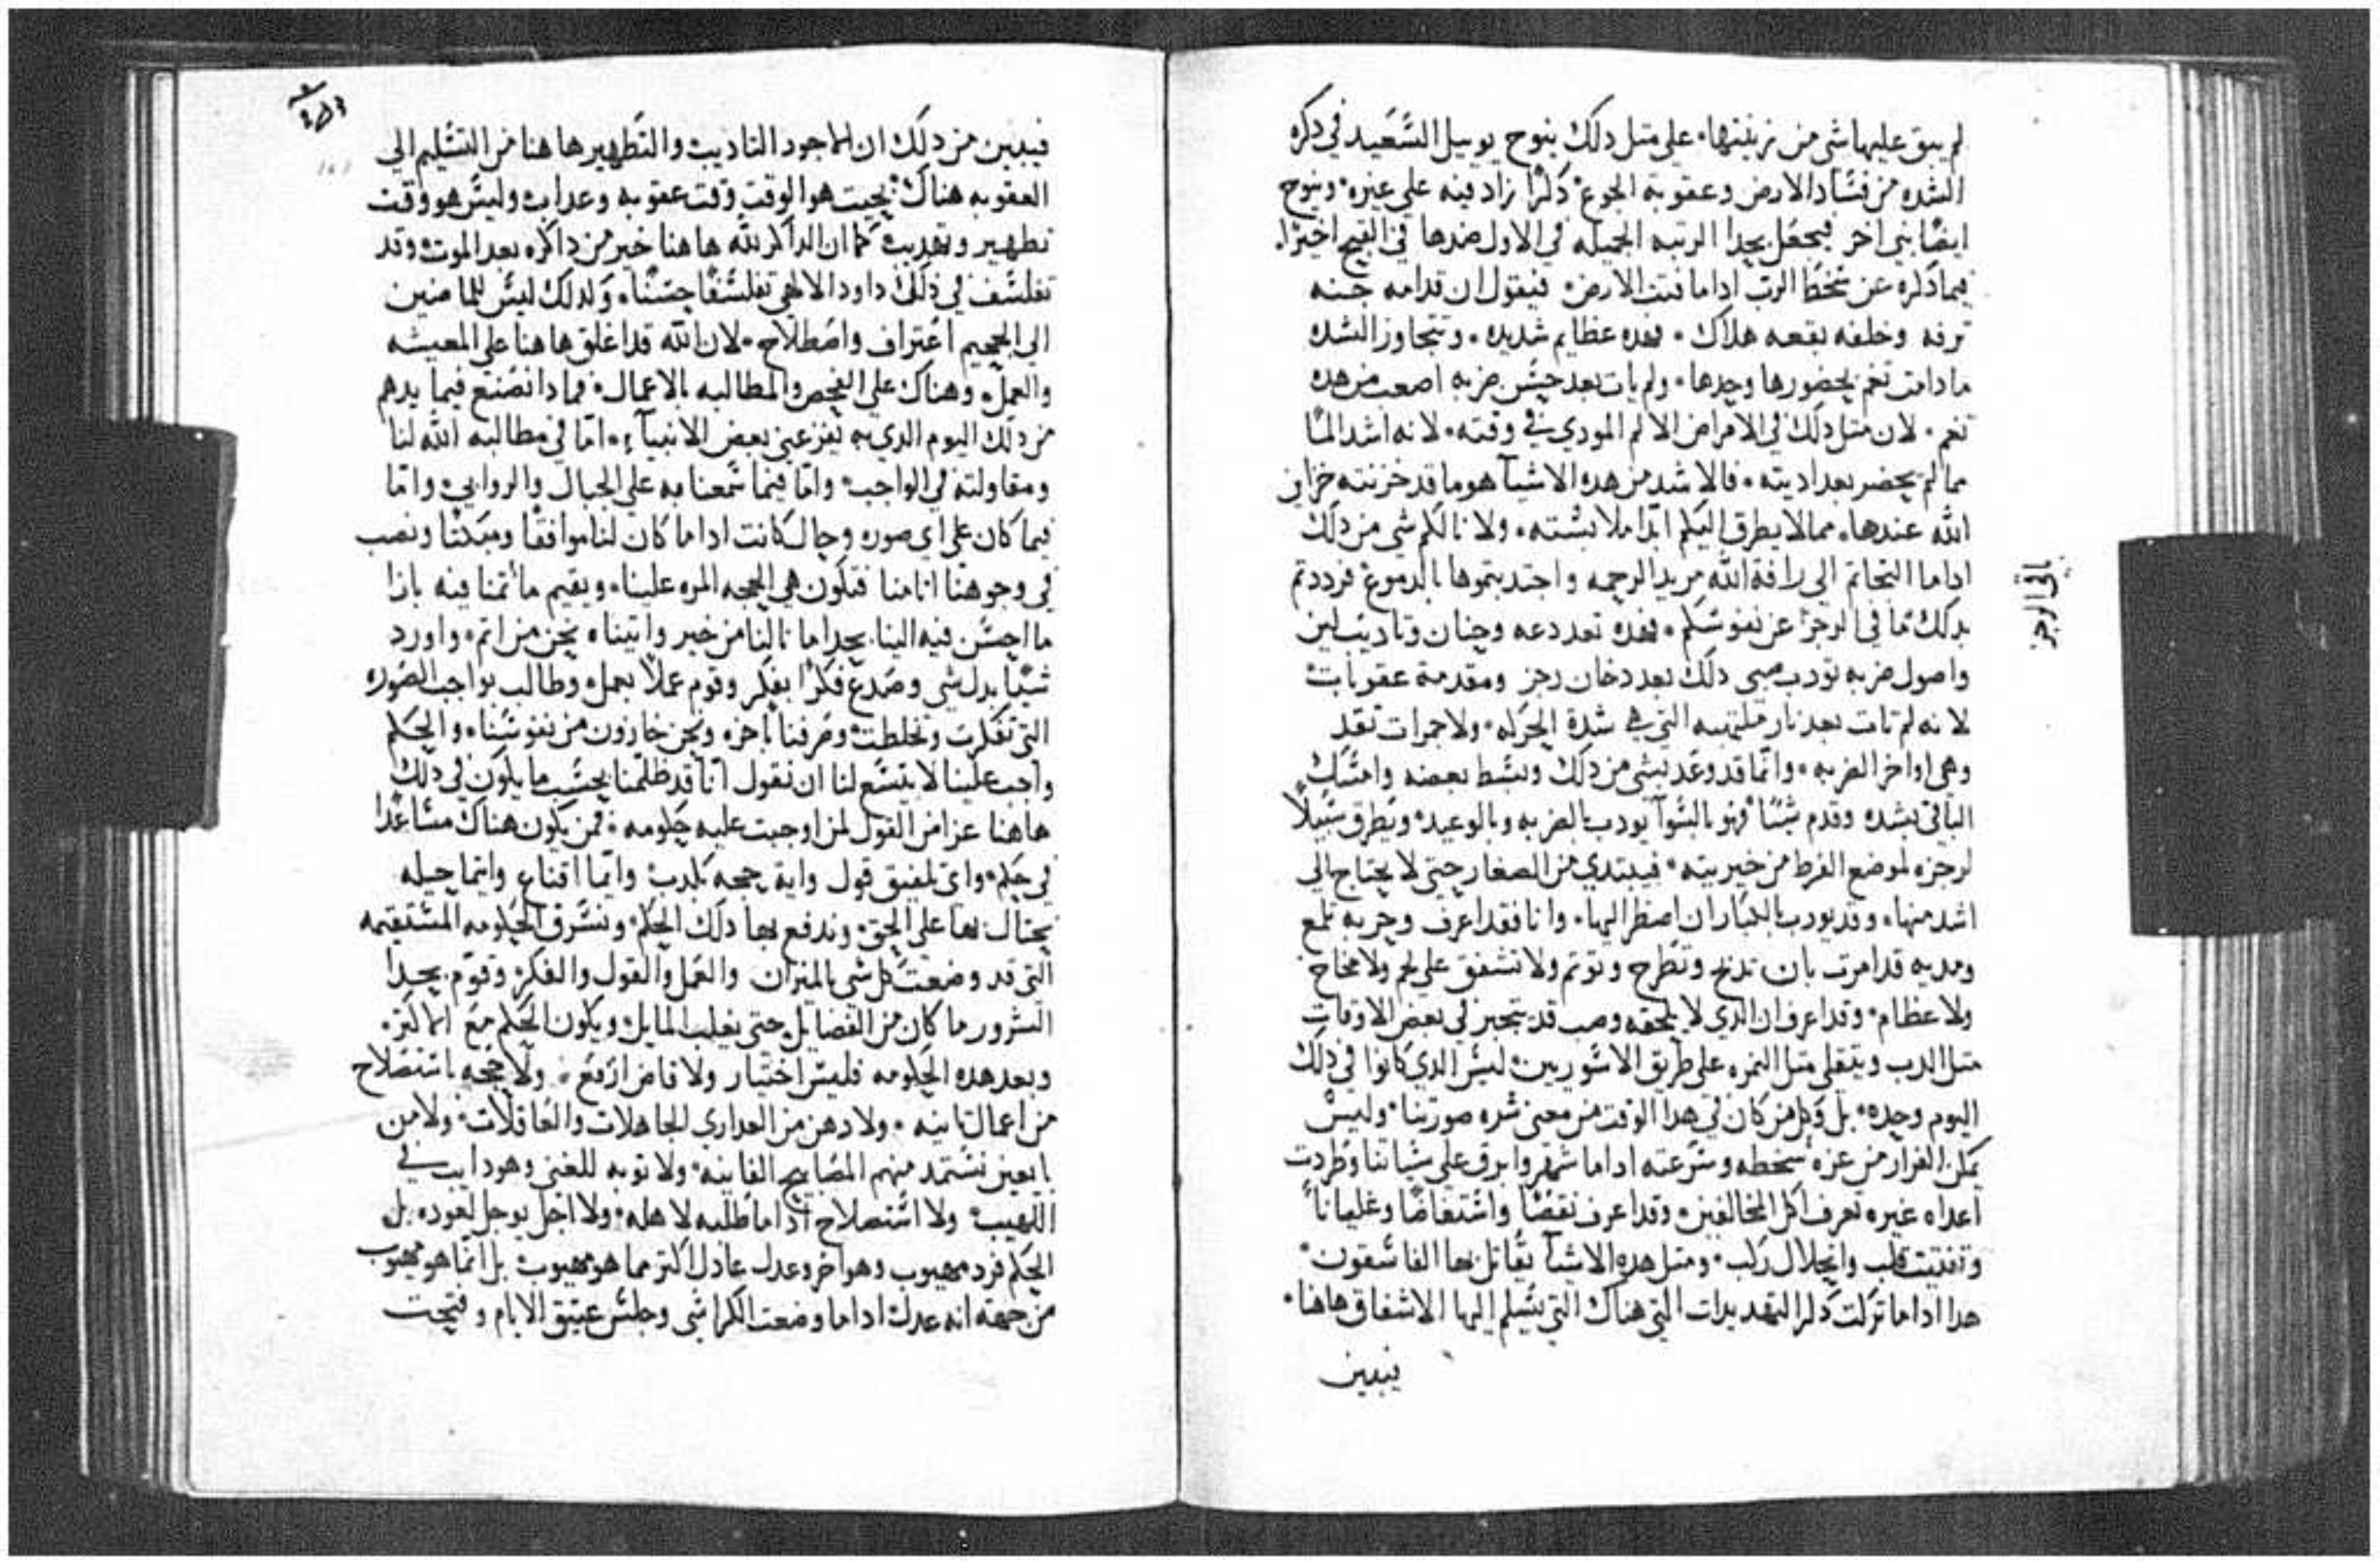 لم يبق عليها شي من زينتها ٠ علي مثل دلك ينوح يوييل السعيد في دكره
الشده من فساد الارض وعقوبة الجوع دكرًا زاد فيه علي غيره ٠ وينوح
ايضًا نبي اخر فيجعل بحدا الرتبه الجميله في الاول ضدها في القبح اخيرًا٠
فيما دكره عن سخط الرب اداما فتت الارض ٠ فيقول ان قدامه جنه
ترفه وخلفه بقعه هلاك ٠ فهده عظايم شديده ٠ وتتجاوز الشده
ما دامت تغم بحضورها وحدها ٠ ولم يات بعد حس ضربه اصعب من هده
تغم ٠ لان مثل دلك في الامراض الالم المودي في وقته ٠ لانه اشد المًا
مما لم يحضر بعد اديته ٠ فالاشد من هده الاشيآ هو ما قد خزنته خزاين
الله عندها ٠ مما لا يطرق اليكم ابدًا ملابسته ٠ ولا نالكم شي من دلك
اداما التجاتم الي رافة الله مريد الرحمه واجتديتموها بالدموع فرددتم
بدلك ما في الرجز عن نفوسكم ٠ فهده تعد دعه وحنان وتاديب لين
واصول ضربه تودب صبي دلك بعد دخان رجز ومقدمة عقوبات
لانه لم تات بعد نار ملتهبه التي هي شدة الحركه ٠ ولا جمرات تقد
وهي اواخر الضربه ٠ وانما قد وعد بشي من دلك وبسط بعضه وامسك
الباقي بشده وقدم شيًا فهو بالسوآ يودب بالضربه وبالوعيد ٠ ويطرق سبيلًا
لرجزه لموضع الفرط من خيريته ٠ فيبتدي من الصغار حتي لا يحتاج الي
اشد منها ٠ وقد يودب بالكبار ان اضطر اليها ٠ وانا فقد اعرف وحربه تلمع
ومديه قد امرت بان تدبح وتطرح وتوتم ولا تشفق علي لحم ولا مخاخ
ولا عظام ٠ وقد اعرف ان الدي لا يلحقه وصب قد يتجبر في بعض الاوقات
مثل الدب ويتقلي مثل النمره علي طريق الاشوريين ٠ ليس الدي كانوا في دلك
اليوم وحده ٠ بل وكل من كان في هدا الوقت من معني شره صورتنا ٠ وليس
يمكن الفرار من عزه سخطه وسرعته اداما شهر وابرق علي سياتنا وطردت
اعداه غيره تعرف اكل المخالفين ٠ وقد اعرف نقضًا وانتفاضًا وغليانًا
وتفتيت قلب وانحلال ركب ٠ ومثل هده الاشيآ يقاتل بها الفاسقون
هدا اداما تركت دكر التهديدات التي هناك التي يسلم اليها الاشفاق هاهنا ٠
فيبين
باقي الرجز
فيبين من دلك ان الاجود التاديب والتطهير هاهنا من التسليم الي
العقوبه هناك بحيث هو الوقت وقت عقوبه وعداب وليس هو وقت
تطهير وتهديب كما ان الداكر لله هاهنا خير من داكره بعد الموت وقد
تفلسف في دلك داود الالاهي تفلسفًا حسنًا ٠ ولدلك ليس للماضين
الي الجحيم اعتراف واصطلاح ٠ لان الله قد اغلق هاهنا علي المعيشه
والعمل ٠ وهناك علي الفحص والمطالبه بالاعمال ٠ فمادا نصنع فيما يدهم
من دلك اليوم الدي به يفزعني بعض الانبيآء ٠ اما في مطالبه الله لنا
ومقاولته في الواجب ٠ واما فيما سمعنا به علي الجبال والروابي ٠ واما
فيما كان علي اي صوره وحال كانت اداما كان لنا موافقًا ومبكتًا ونصب
في وجوهنا اثامنا فتكون هي الحجه المره علينا ٠ ويقيم ما اثمنا فيه بازا
ما احسن فيه الينا بحدا ما نالنا من خير واتيناه نحن من اثم ٠ واورد
شيًا بدل شي وصدع فكرًا بفكر وقوم عملًا بعمل ٠ وطالب بواجب الصوره
التي تفكرت وتخلطت وصرفنا باخره ونحن خازون من نفوسنا ٠ والحكم
واجب علينا لا يتسع لنا ان نقول اننا قد ظلمنا بحسب ما يكون في دلك
هاهنا عزا من القول لمن اوجبت عليه حكومه ٠ فمن يكون هناك مساعدًا
في حكم ٠ واي تلفيق قول واية حجه تكدب وايما اقناع وايما حيله
يحتال بها علي الحق ٠ وندفع بها دلك الحكم ٠ ونسرق الحكومه المستقيمه
التي قد وضعت كل شي بالميزان والعمل والقول والفكر وقوم بحدا
الشرور ما كان من الفضايل حتي يغلب المايل ٠ ويكون الحكم مع الاكثر ٠
وبعد هده الحكومه فليس اختيار ولا قاض ارفع ٠ ولا حجه باستصلاح
من اعمال ثانيه ٠ ولا دهن من العداري للجاهلات والعاقلات ٠ ولا من
بايعين نستمد منهم المصابيح الفانيه ٠ ولا توبه للغني وهو دايب في
اللهيب ٠ ولا استصلاح اداما طلبه لاهله ٠ ولا اجل يوجل لعوده بل
الحكم فرد مهيوب وهو اخر وعدل عادل اكثر مما هو مهيوب بل انما هو مهيوب
من جهة انه عدل ٠ اداما وضعت الكراسي وجلس عتيق الايام وفتحت